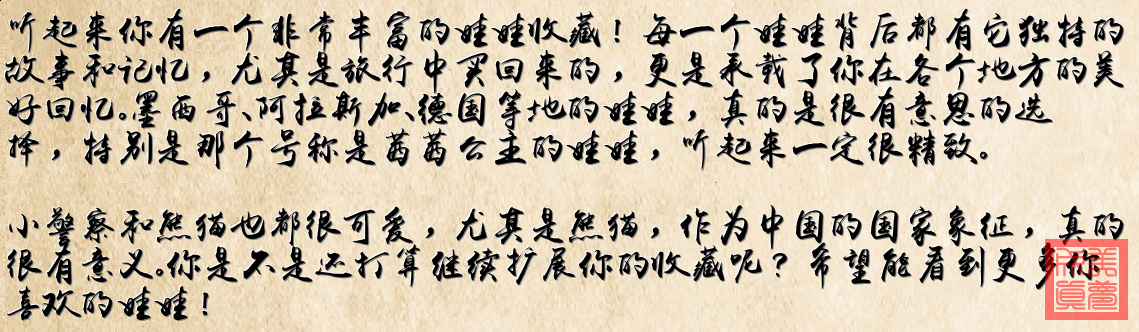 听起来你有一个非常丰富的娃娃收藏！每一个娃娃背后都有它独特的
故事和记忆，尤其是旅行中买回来的，更是承载了你在各个地方的美
好回忆。墨西哥、阿拉斯加、德国等地的娃娃，真的是很有意思的选
择，特别是那个号称是茜茜公主的娃娃，听起来一定很精致。
小警察和熊猫也都很可爱，尤其是熊猫，作为中国的国家象征，真的
很有意义。你是不是还打算继续扩展你的收藏呢？希望能看到更多你
喜欢的娃娃！